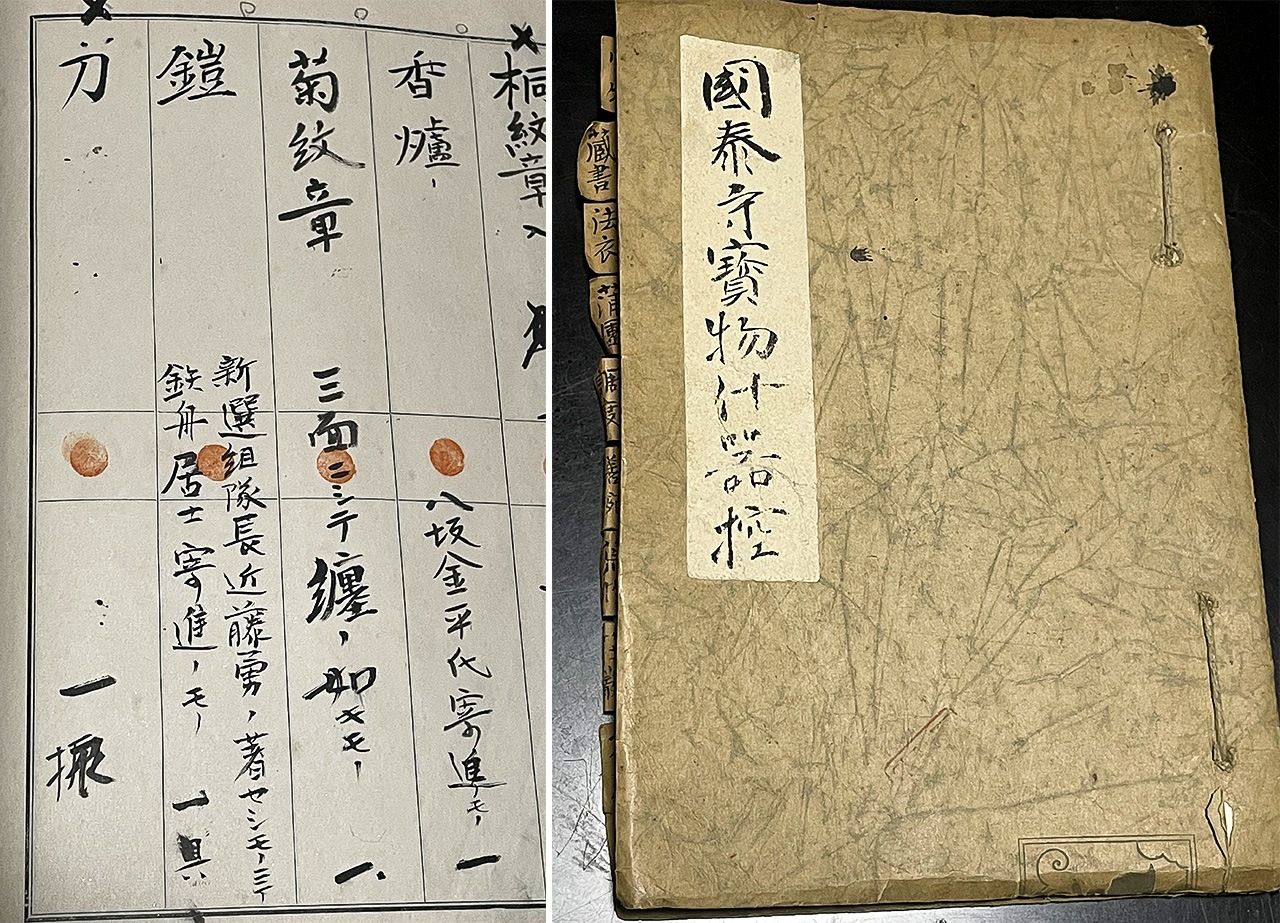 國泰寺寶物什器控
蔵書
法衣
蒲團
桐紋章入
香爐
八坂金平代寄進ノモノ
一
菊紋章
三面ニシテ纏ノ如キモノ
一
鎧
新選組隊長近藤勇ノ著セシモノニテ
鉄舟居士寄進ノモノ
一具
刀
一振